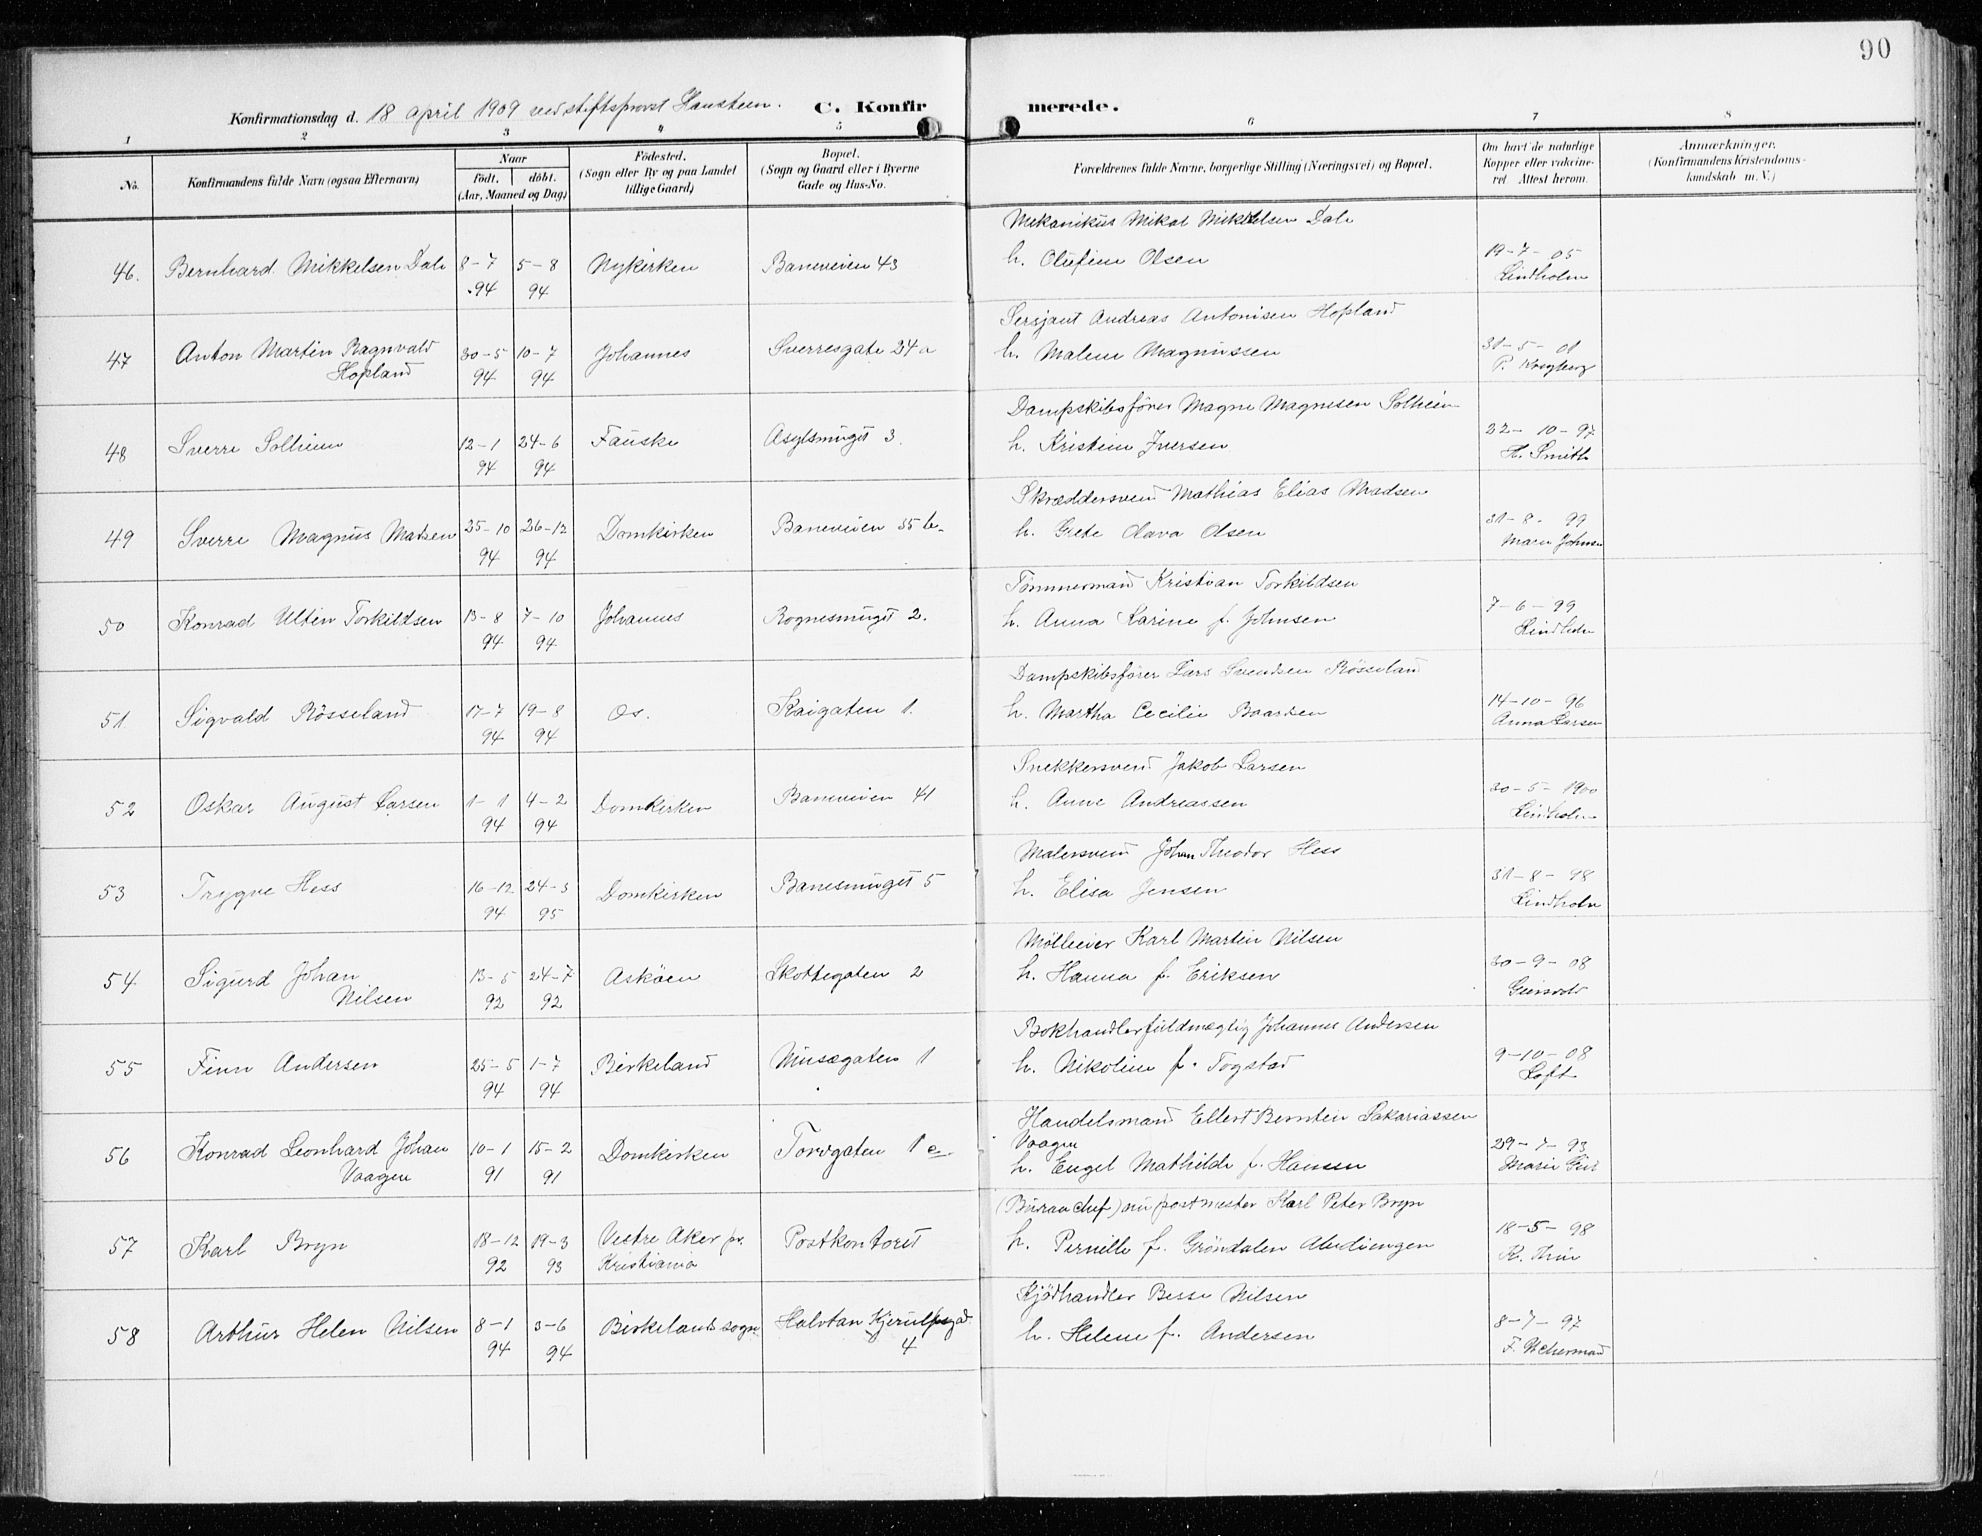 90
Konfirmationsdag d. 18 april 1909 ved stiftsprovst Hansteen. C. Konfirmerede.
1 2 3 4 5 6 7 8
No. Konfirmandens fulde Navn (ogsaa Efternavn) Naar født, døbt. (Aar, Maaned og Dag) Födested. (Sogn eller By og paa Landet tillige Gaard) Bopæl. (Sogn og Gaard eller i Byerne Gade og Hus-No. Forældrenes fulde Navne, borgerlige Stilling (Næringsvei) og Bopæl. Om havt de naturlige Kopper eller vakcineret. Attest herom. Anmærkninger. (Konfirmandens Kristendomskundskab m. V.)
Mekanikus Mikal Mikkelsen Dale
46. Bernhard Mikkelsen Dale 8-7 94 5-8 94 Nykirken Baneveien 43 h. Olufine Olsen 19-7-05 Lindholm
Sersjant Andreas Antonisen Hopland
47 Anton Martin Ragnvald Hopland 30-5 94 10-7 94 Johannes Sverresgate 24a h. Malene Magnussen 31-5-01 P. Krogberg
Dampskibsfører Magne Magnesen Solheim
48 Sverre Solheim 12-1 94 24-6 94 Fauske Asylsmuget 3. h. Kristine Iversen 22-10-97 H. Smith
Skræddersvend Mathias Elias Madsen
49 Sverre Magnus Madsen 25-10 94 26-12 94 Domkirken Baneveien 35 b. h. Grete Olava Olsen 31-8-99 Maren Johnsen
Tømmermand Kristian Torkildsen
50 Konrad Ultin Torkildsen 13-8 94 7-10 94 Johannes Rognesmuget 2. h. Anna Karine f. Johnsen 7-6-99 Lindholm
Dampskibsfører Lars Svendsen Røsseland
51 Sigvald Røsseland 17-7 94 19-8 94 Os. Kaigaten 1. h. Martha Cecilie Baardsen 14-10-96 Anna Larsen
Snekkersvend Jakob Larsen
52 Oskar August Larsen 1-1 94 4-2 94 Domkirken Baneveien 41 h. Anne Andreassen 30-5-1900 Lindholm
Malersvend Johan Theodor Hess
53 Trygve Hess 16-12 94 24-3 95 Domkirken Banesmuget 5 h. Elisa Jensen 31-8-98 Lindholm
Mølleeier Karl Martin Nilsen
54 Sigurd Johan Nilsen 13-5 92 24-7 92 Askøen Skottegaten 2 h. Hanna f. Eriksen 30-9-08
Bokhandlerfuldmægtig Johannes Andersen
55 Finn Andersen 25-5 94 1-7 94 Birkeland Musægaten 1 h. Nikoline f. Togstad 9-10-08 Loft
Handelsmand Ellert Bernten Sakariassen Vaagen
56 Konrad Leonhard Johan Vaagen 10-1 91 15-2 91 Domkirken Torvgaten 1 c. h. Engel Mathilde f. Hansen 29-7-93 Marie
(Bureauchef) nu postmester Karl Peter Bryn
57 Karl Bryn 18-12 92 19-3 93 Vestre Aker pr. Kristiania Postkontoret h. Pernille f. Grøndalen 18-5-98
Kjødhandler Besse Nilsen
58 Arthur Helen Nilsen 8-1 94 3-6 94 Birkelands sogn Halvdan Kjerulfsgad. 4 h. Helene f. Andersen 8-7-97